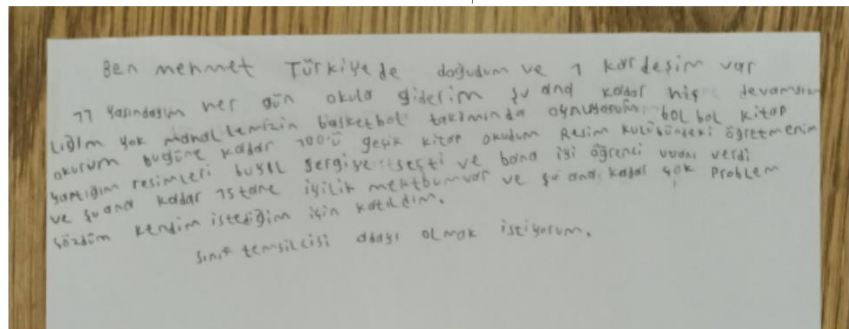 Ben mehmet Türkiyede doğudum ve 1 kardeşim var
11 yaşındayım her gün okula giderim şu ana kadar hiç devamsız
lığım yok mahallemizin basketbol takımında oynuyorum bol bol kitap
okurum bugüne kadar 100'ü geçik kitap okudum Resim kulübündeki öğretmenim
yaptığım resimleri buyıl sergiye seçti ve bana iyi öğrenci verdi
ve şu ana kadar 15 tane iyilik mektbumvar ve şu ana kadar çok problem
çözdüm kendim istediğim için katıldım.
sınıf temsilcisi adayı olmak istiyorum.